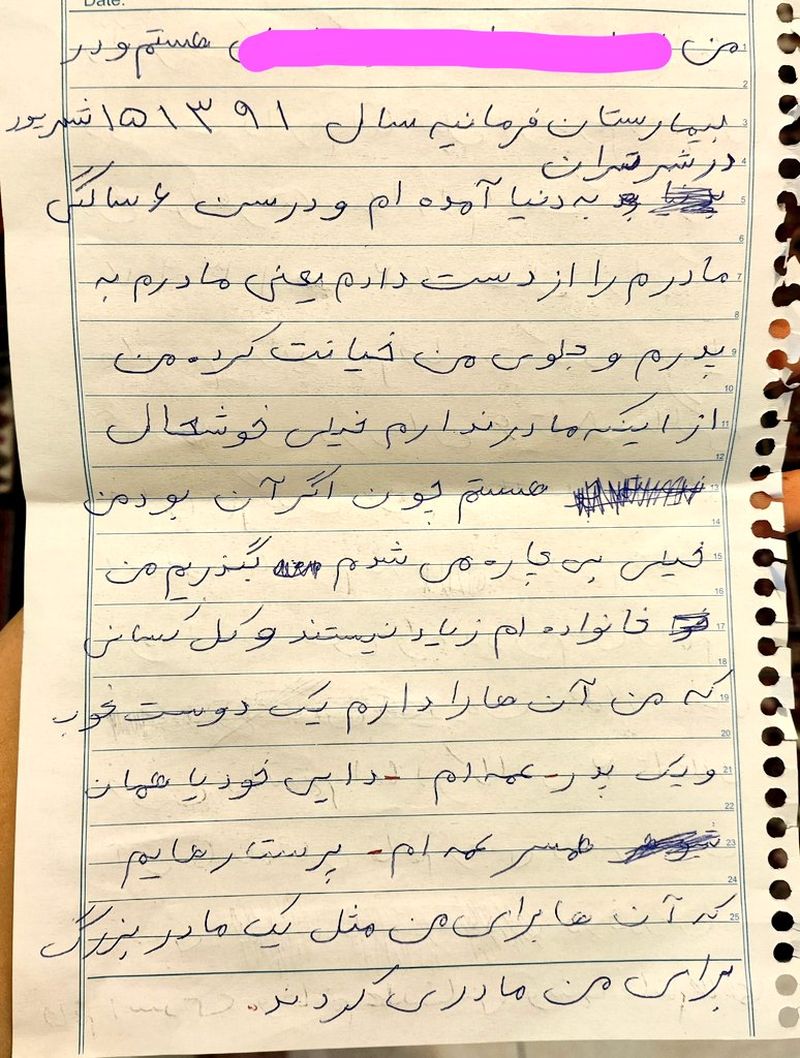 Date:
من هستم و در
بیمارستان فرمانیه سال ۱۳۹۱ ۱۵ شهریور
در شهر تهران
به دنیا آمده ام و در سن ۶ سالگی
مادرم را از دست دادم یعنی مادرم به
پدرم و جلوی من خیانت کرد. من
از اینکه مادر ندارم خیلی خوشحال
هستم چون اگر آن بود من
خیلی بی چاره می شدم بگذریم من
خانواده ام زیاد نیستند و کل کسانی
که من آن ها را دارم یک دوست خوب
و یک پدر - عمه ام - دایی خود یا همان
همسر عمه ام - پرستارهایم
که آن ها برای من مثل یک مادر بزرگ
برای من مادری کرداند.